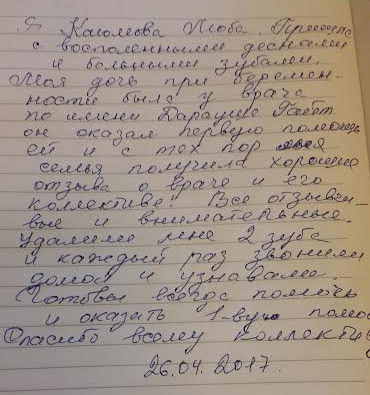 Я Каюмова Люба. Пришла
с воспаленными деснами
и больными зубами.
Моя дочь при беремен-
ности была у врача
по имени Дарауше Габет
он оказал первую помощь
ей и с тех пор моя
семья получила хорошие
отзывы о враче и его
коллективе. Все отзывчи-
вые и внимательные.
Удалили мне 2 зуба
и каждый раз звонили
домой и узнавали.
Готовы всегда помочь
и оказать 1-вую помо
Спасибо всему коллекти
26.04.2017.